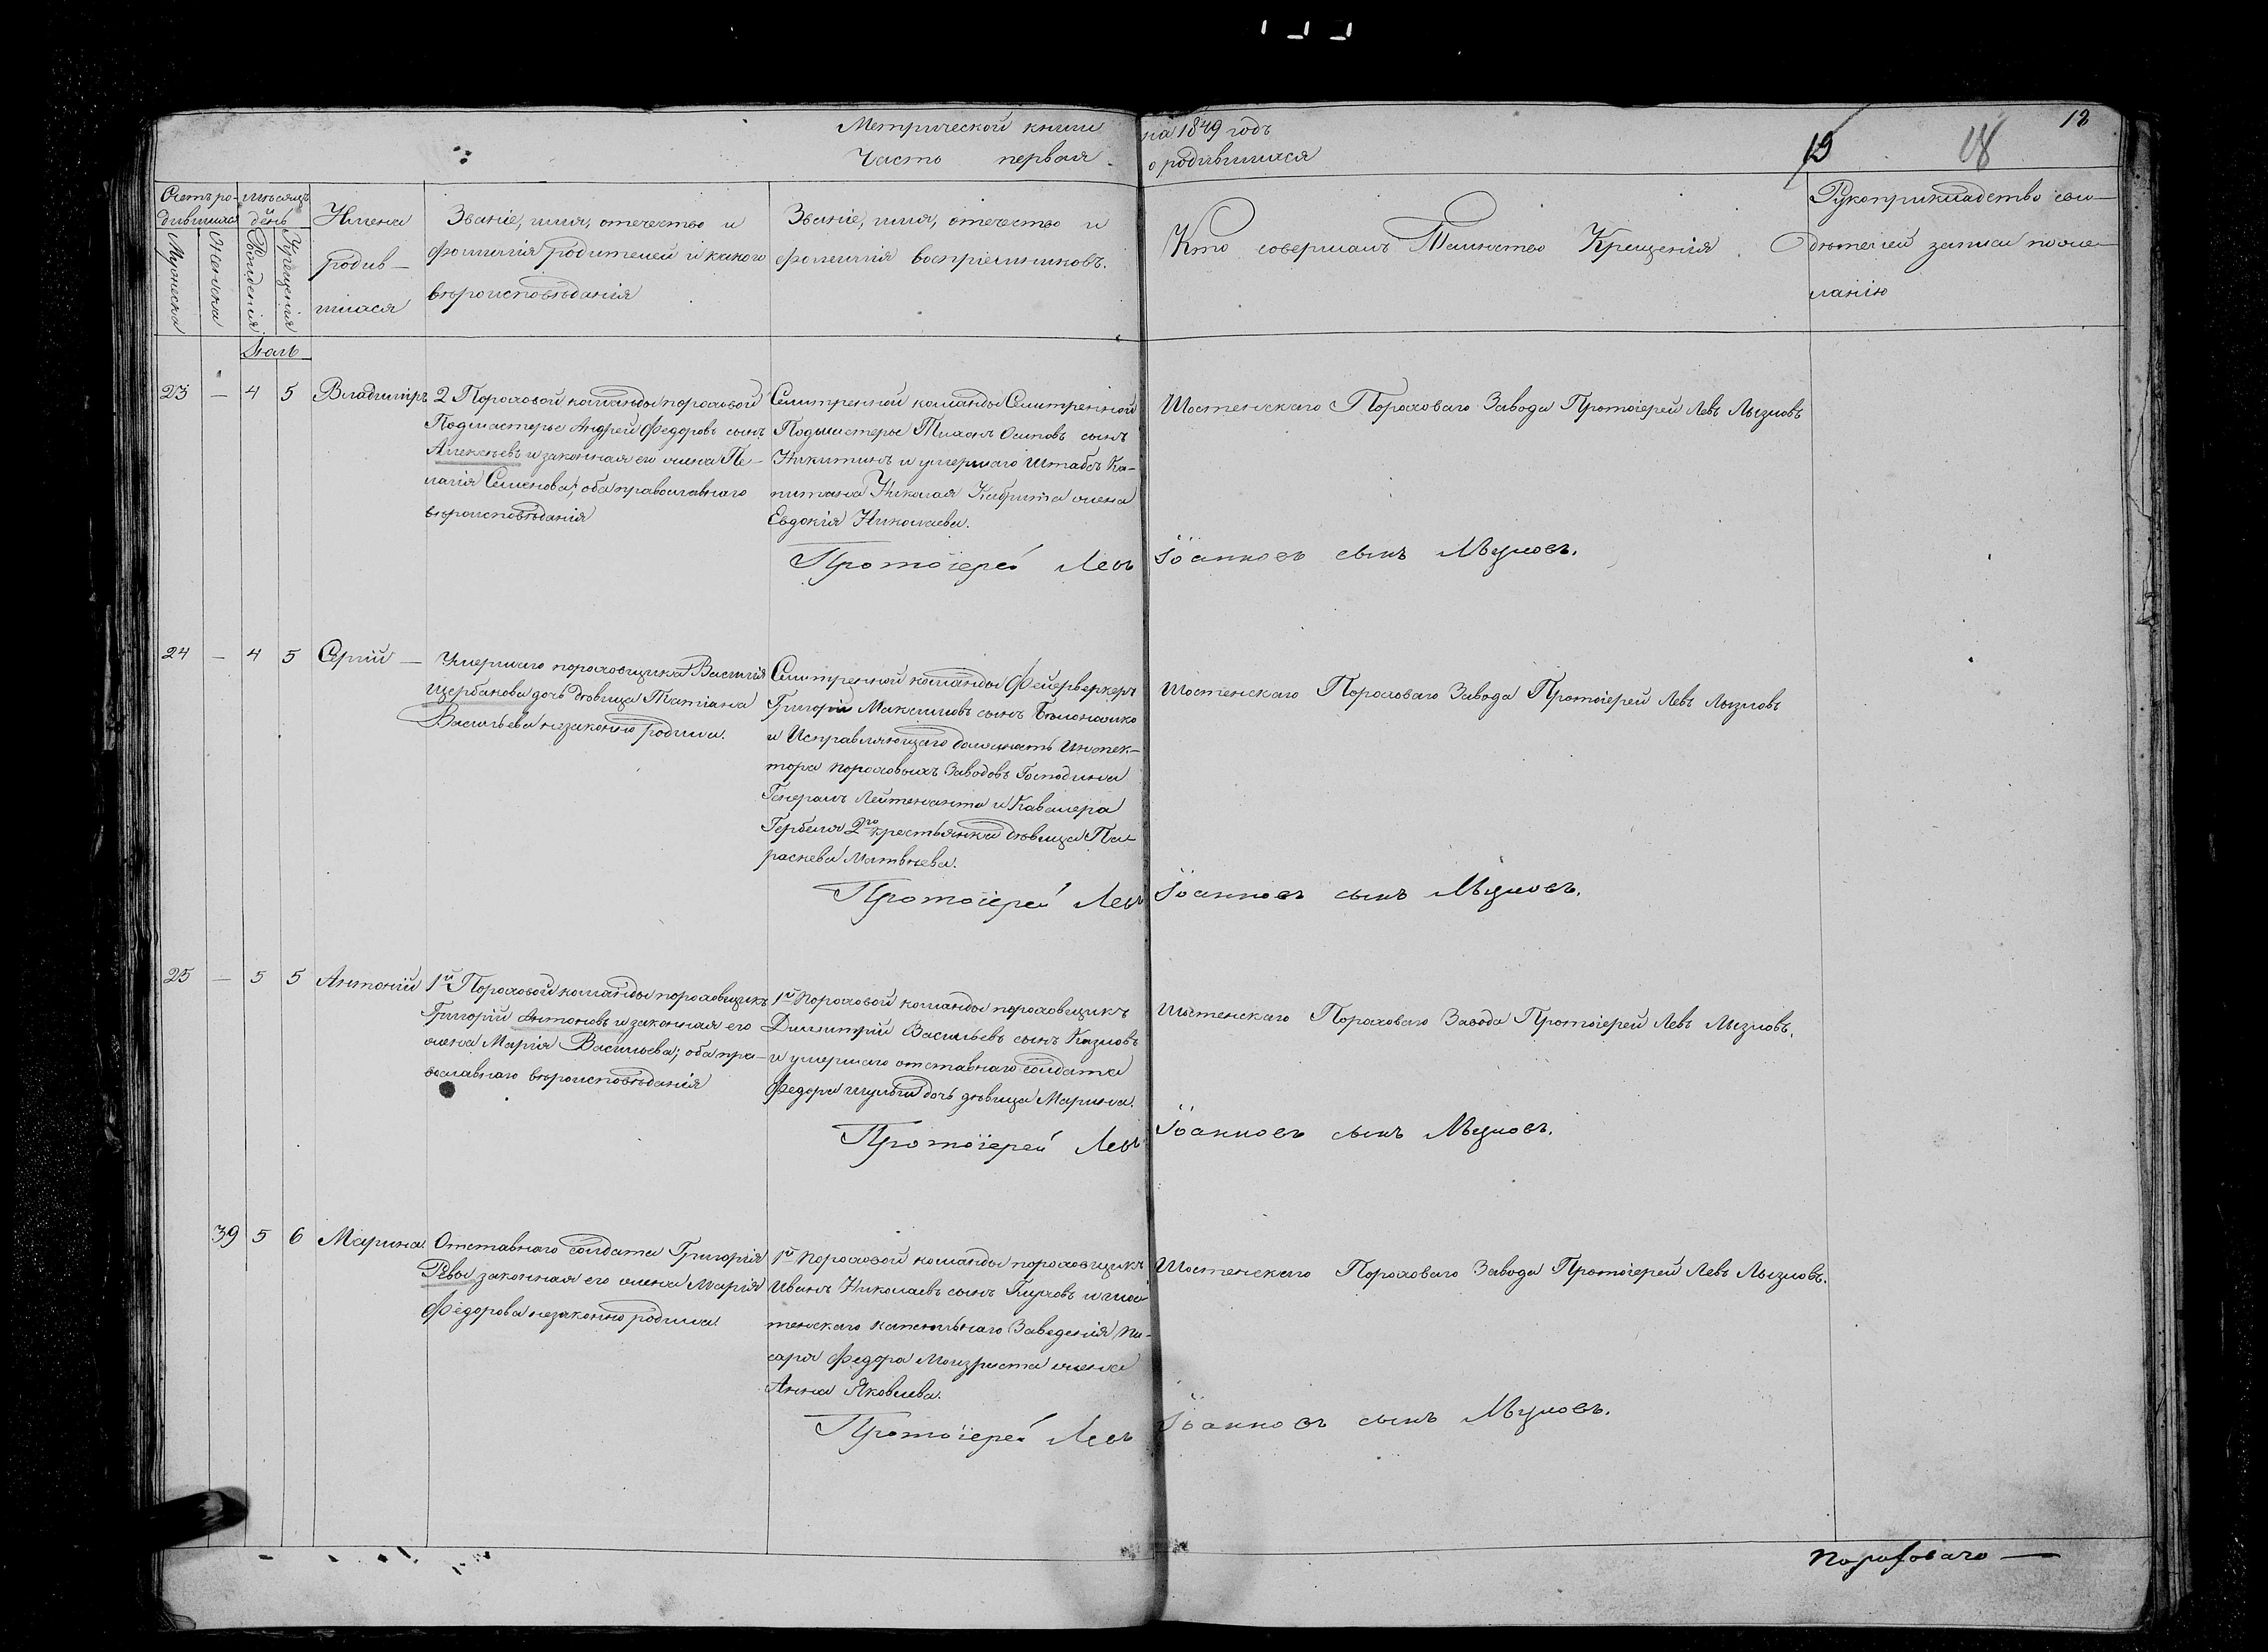 Метрической книги на 1849 годъ
Часть первая о родившихся
19
18
12
Счетъ ро-
дившихся
Мужеска
Женска
мѣсяцъ
и день
Рожденія
Крещенія
Имена
родив-
шихся
Званіе, имя, отечество и
фамилія родителей и какого
вѣроисповѣданія
Званіе, имя, отечество и
фамилія воспріемниковъ.
Кто совершалъ Таинство Крещенія
Рукоприкладство сви-
дѣтелей записи по же-
ланію
Іюль
23 — 4 5 Владиміръ
2 Пороховой команды пороховой
Подмастерье Андрей Федоровъ сынъ
Алексѣевъ и законная его жена Пе-
лагія Семенова; оба православнаго
вѣроисповѣданія
Селитренной команды Селитренной
Подмастерье Тихонъ Осиповъ сынъ
Никитинъ и умершаго Штабсъ Ка-
питана Николая Кабрита жена
Евдокія Николаева.
Шостенскаго Пороховаго Завода Протоіерей Левъ Лызловъ
Протоіерей Левъ Іоанновъ сынъ Лызловъ.
24 — 4 5 Сергій —
Умершаго пороховщика Василія
Щербакова дочь дѣвица Татіана
Васильева незаконно родила.
Селитренной команды Фейерверкеръ
Григорій Максимовъ сынъ
и Исправляющаго должность Инспек-
тора пороховыхъ Заводовъ Господина
Генералъ Лейтенанта и Кавалера
Гербеля 2го крестьянка дѣвица Па-
раскева Матвѣева.
Шостенскаго Пороховаго Завода Протоіерей Левъ Лызловъ
Протоіерей Левъ Іоанновъ сынъ Лызловъ.
25 — 5 5 Антоній
1й Пороховой команды пороховщикъ
Григорій Антоновъ и законная его
жена Марія Васильева; оба пра-
вославнаго вѣроисповѣданія
1й Пороховой команды пороховщикъ
Димитрій Васильевъ сынъ Козловъ
и умершаго отставнаго солдата
Федора Шульги дочь дѣвица Марина.
Шостенскаго Пороховаго Завода Протоіерей Левъ Лызловъ.
Протоіерей Левъ Іоанновъ сынъ Лызловъ.
39 5 6 Марина
Отставнаго солдата Григорія
Ревы законная его жена Марія
Федорова незаконно родила.
1й Пороховой команды пороховщикъ
Иванъ Николаевъ сынъ и Шос-
тенскаго капсюльнаго Заведенія пи-
саря Федора жена
Анна Яковлева.
Шостенскаго Пороховаго Завода Протоіерей Левъ Лызловъ.
Протоіерей Левъ Іоанновъ сынъ Лызловъ.
Пороховаго —